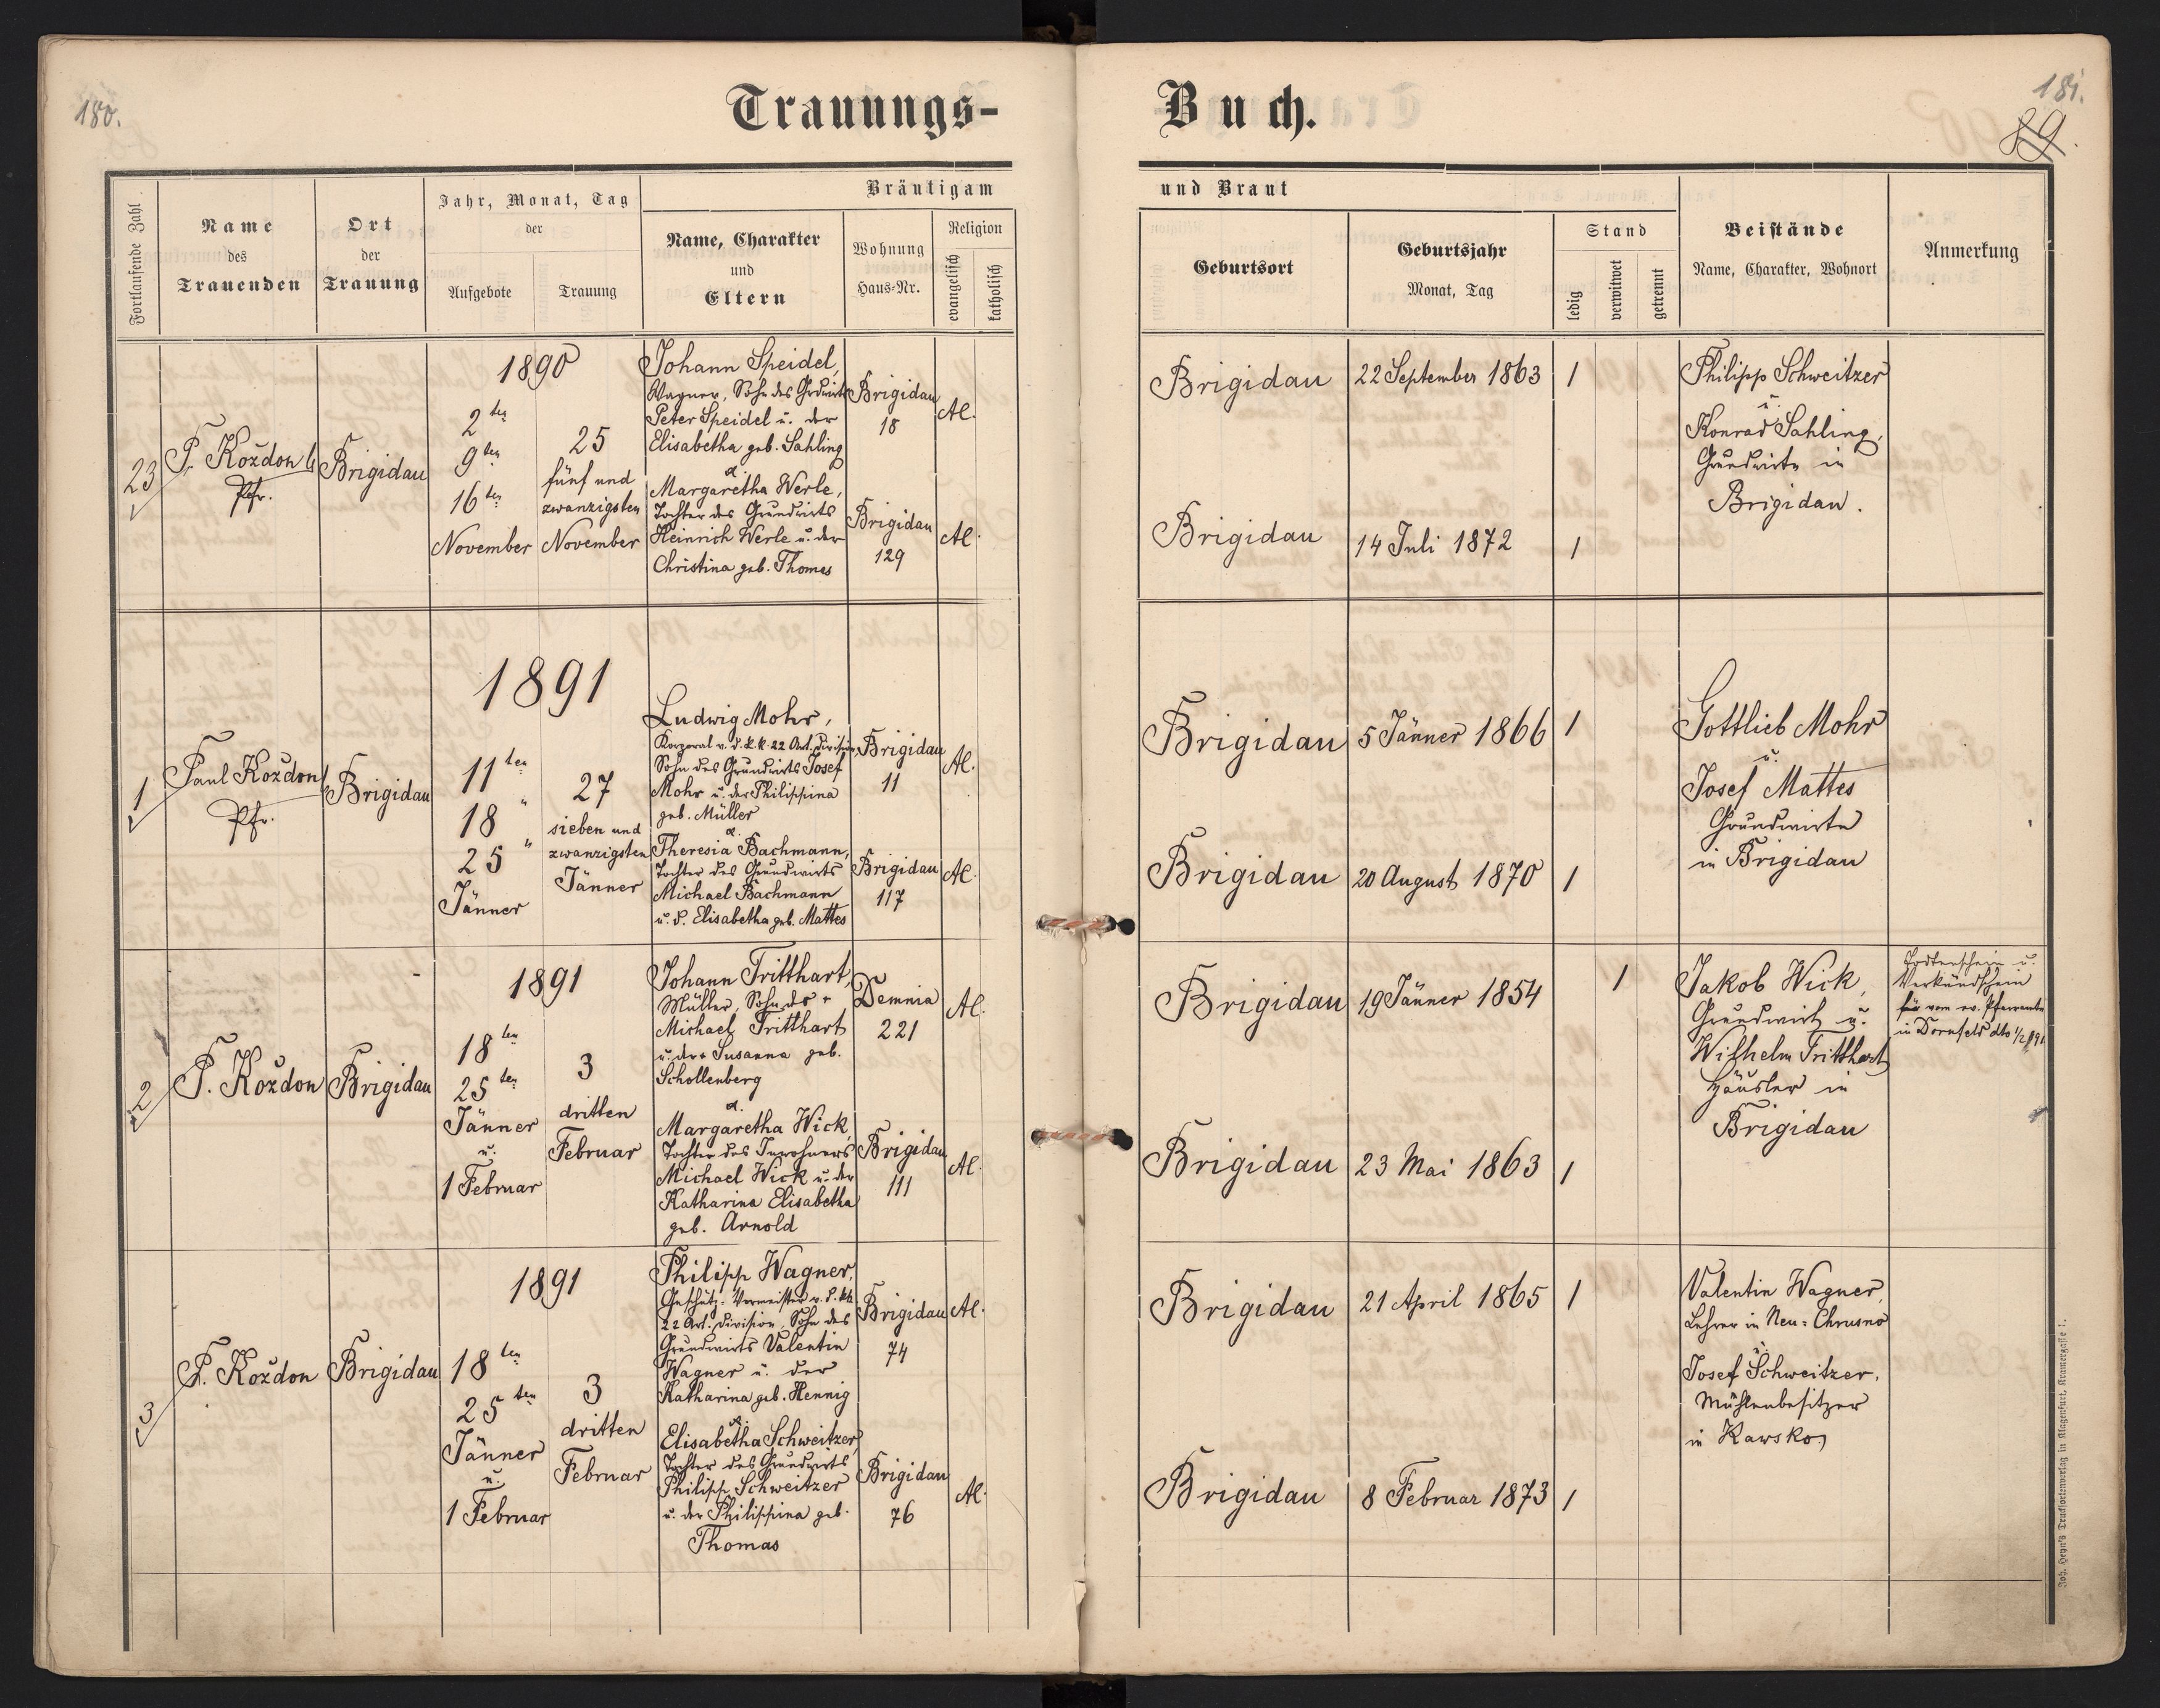 180.
181.
89.
Trauungs-Buch.
Fortlaufende Zahl
Name
des
Trauenden
Ort
der
Trauung
Jahr, Monat, Tag
der
Aufgebote
Trauung
Bräutigam und Braut
Name, Charakter
und
Eltern
Wohnung
Haus-Nr.
Religion
evangelisch
katholisch
Geburtsort
Geburtsjahr
Monat, Tag
Stand
ledig
verwitwet
getrennt
Beistände
Name, Charakter, Wohnort
Anmerkung
23
P. Koždon
Pfr.
Brigidau
1890
2ten
9ten
16ten
November
25
fünf und
zwanzigsten
November
Johann Speidel,
Wagner, Sohn des Grdwirts
Peter Speidel u. der
Elisabetha geb. Sahling
Brigidau
18
Al.
Margaretha Werle,
Tochter des Grundwirts
Heinrich Werle u. der
Christina geb. Thomes
Brigidau
129
Al.
Brigidau
22 September 1863
1
Brigidau
14 Juli 1872
1
Philipp Schweitzer
u.
Konrad Sahling,
Grundwirte in
Brigidau.
1891
1
Paul Koždon
Pfr.
Brigidau
11ten
18 "
25 "
Jänner
27
sieben und
zwanzigsten
Jänner
Ludwig Mohr,
Korporal v. d. k. k. 22 Art. Division,
Sohn des Grundwirts Josef
Mohr u. der Philippina
geb. Müller
Brigidau
11
Al.
Theresia Bachmann,
Tochter des Grundwirts
Michael Bachmann
u. d. Elisabetha geb. Mattes
Brigidau
117
Al.
Brigidau
5 Jänner 1866
1
Brigidau
20 August 1870
1
Gottlieb Mohr
u.
Josef Mattes
Grundwirte
in Brigidau
2
P. Koždon
Brigidau
1891
18ten
25ten
Jänner
u.
1 Februar
3
dritten
Februar
Johann Tritthart,
Müller, Sohn des +
Michael Tritthart
u. der + Susanna geb.
Schollenberg
Demnia
221
Al.
Margaretha Wick,
Tochter des Inwohners
Michael Wick u. der
Katharina Elisabetha
geb. Arnold
Brigidau
111
Al.
Brigidau
19 Jänner 1854
1
Brigidau
23 Mai 1863
1
Jakob Wick,
Grundwirt u.
Wilhelm Tritthart
Häusler in
Brigidau
Todtenschein u.
Verkündschein
vom ev. Pfarramte
in Dornfeld dto 1/2 891
3
P. Koždon
Brigidau
1891
18ten
25ten
Jänner
u.
1 Februar
3
dritten
Februar
Philipp Wagner,
Geschütz-Vormeister v. d. kk
22 Art. Division, Sohn des
Grundwirts Valentin
Wagner u. der
Katharina geb. Hennig
Brigidau
74
Al.
Elisabetha Schweitzer,
Tochter des Grundwirts
Philipp Schweitzer
u. der Philippina geb.
Thomas
Brigidau
76
Al.
Brigidau
21 April 1865
1
Brigidau
8 Februar 1873
1
Valentin Wagner,
Lehrer in Neu-Chrusno
u.
Josef Schweitzer,
Mühlenbesitzer
in Kawsko
Joh. Heyn's Drucksortenverlag in Klagenfurt, Kramergasse 1.